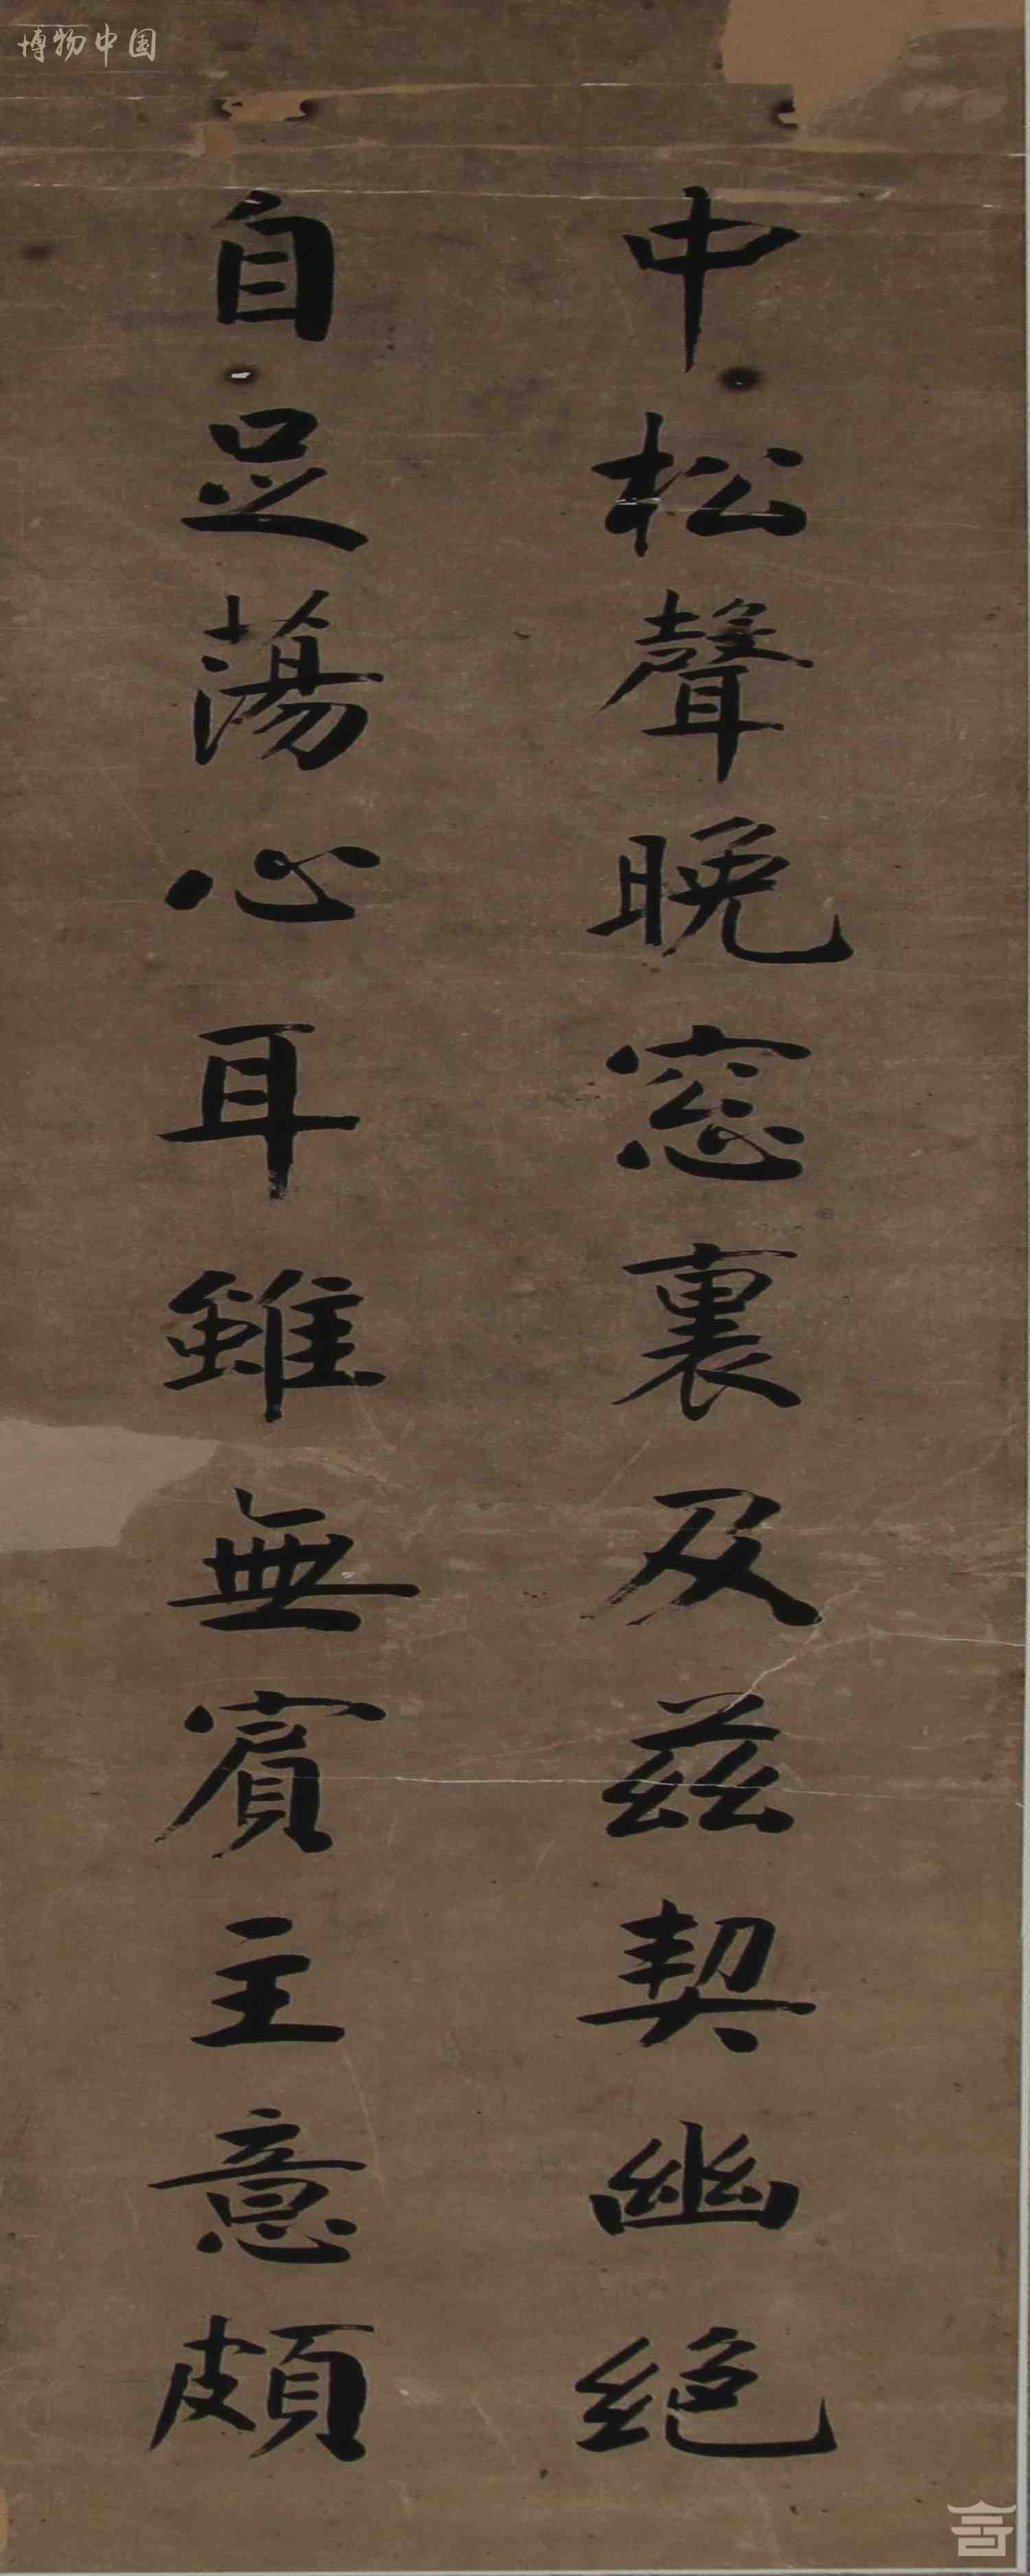 博物中国
中松聲晚窓裏及兹契幽絶
自足蕩心耳雖無賓主意頗